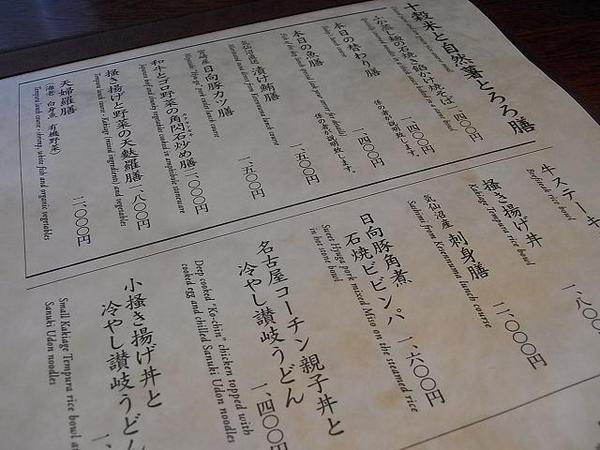 十穀米と自然薯とろろ膳
石焼き餡かけ焼そば 一、四〇〇円
本日の替わり膳 一、四〇〇円
係の者が説明致します。
本日の魚膳 一、五〇〇円
係の者が説明致します。
気仙沼直送
漬け鮪膳 一、五〇〇円
宮崎産
日向豚カツ膳 一、五〇〇円
和牛とゴロ野菜の角閃石炒め膳 二、〇〇〇円
掻き揚げと野菜の天麩羅膳 一、八〇〇円
Tempura lunch course - Kakiage (mixed ingredients) and vegetables
天婦羅膳 二、〇〇〇円
(海老 白身魚 有機野菜)
Tempura lunch course - shrimp, white fish and organic vegetables
牛ステーキ
Beefsteak rice bowl
掻き揚げ丼 一、八〇
Kakiage Tempura rice bowl
気仙沼産
刺身膳 二、〇〇〇円
Sashimi from Kesennuma lunch course
日向豚角煮
石焼ビビンパ 一、六〇〇円
Sweet Hyuga pork mixed Miso on the steamed rice
in hot stone bowl
名古屋コーチン親子丼と
冷やし讃岐うどん 一、四〇〇円
Deep cooked "Ko-chin" chicken topped with
cooked egg and chilled Sanuki Udon noodles
小掻き揚げ丼と
冷やし讃岐うどん 一、
Small Kakiage Tempura rice bowl a
Sanuki Udon noodles